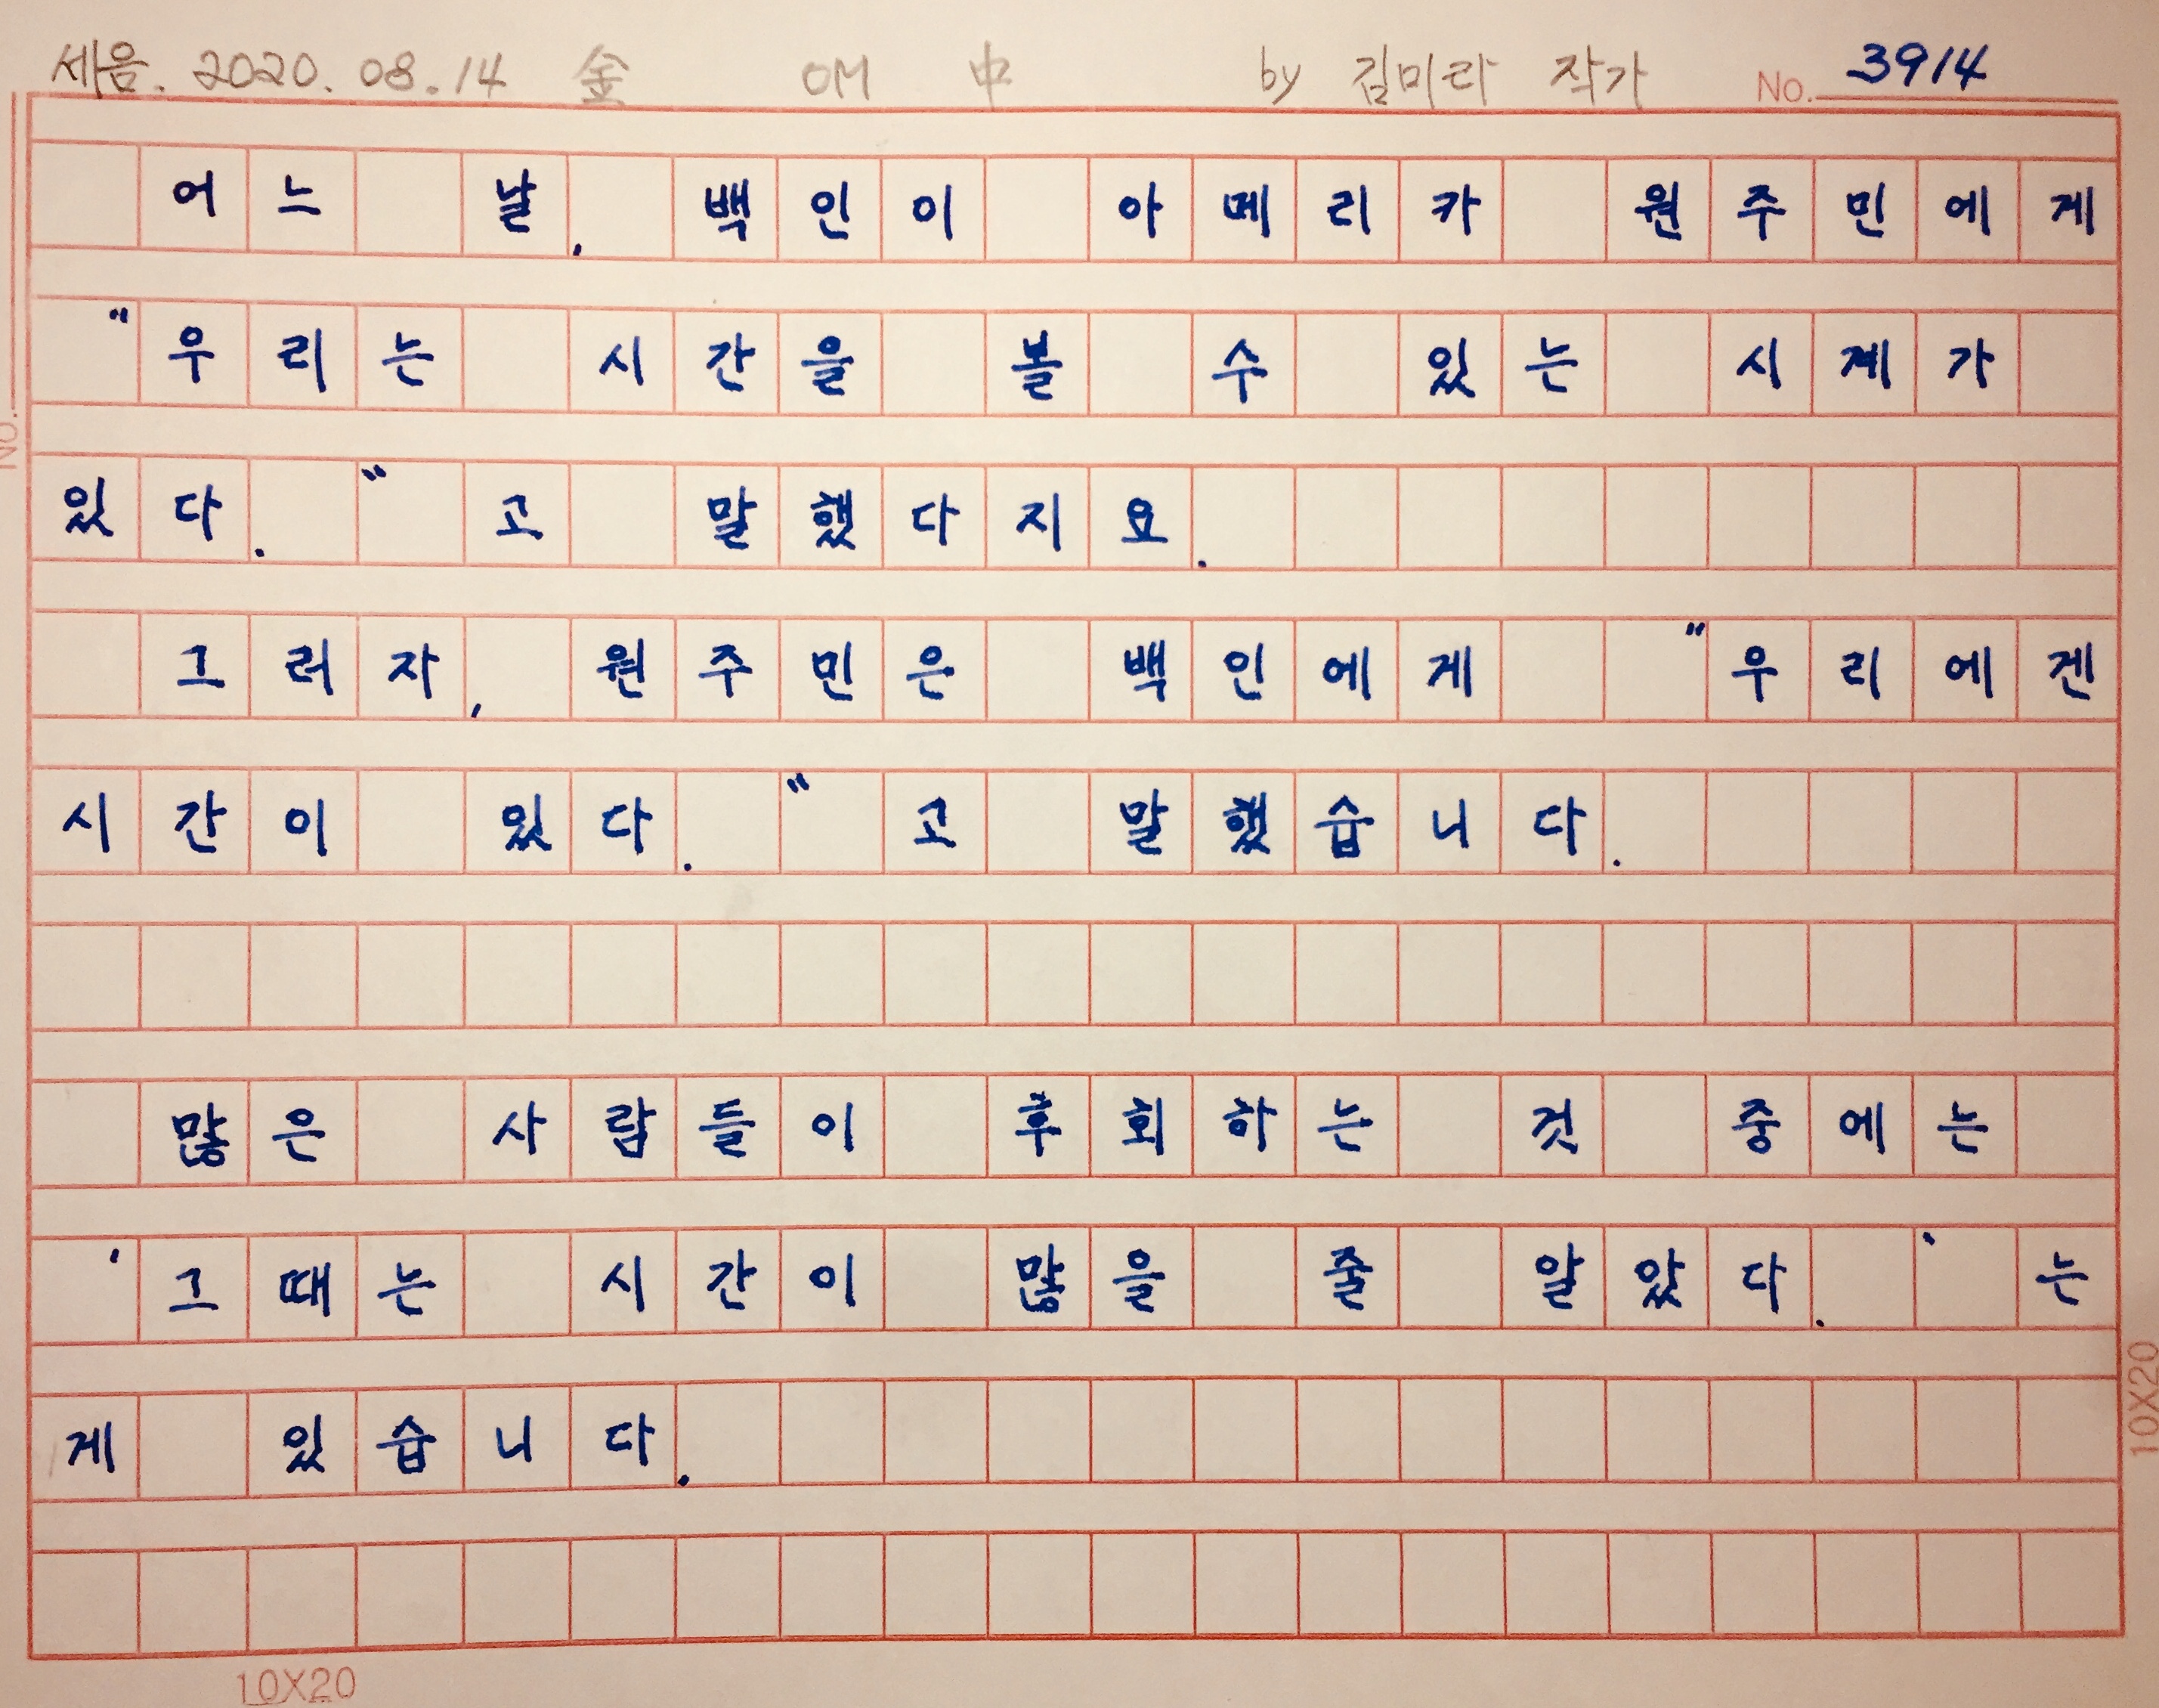 세음. 2020. 08. 14 金 OM 中 by 김미라 작가 No. 3914
어느 날, 백인이 아메리카 원주민에게
"우리는 시간을 볼 수 있는 시계가
있다." 고 말했다지요.
그러자, 원주민은 백인에게 "우리에겐
시간이 있다." 고 말했습니다.
많은 사람들이 후회하는 것 중에는
'그때는 시간이 많을 줄 알았다.' 는
게 있습니다.
No.
10X20
10X20